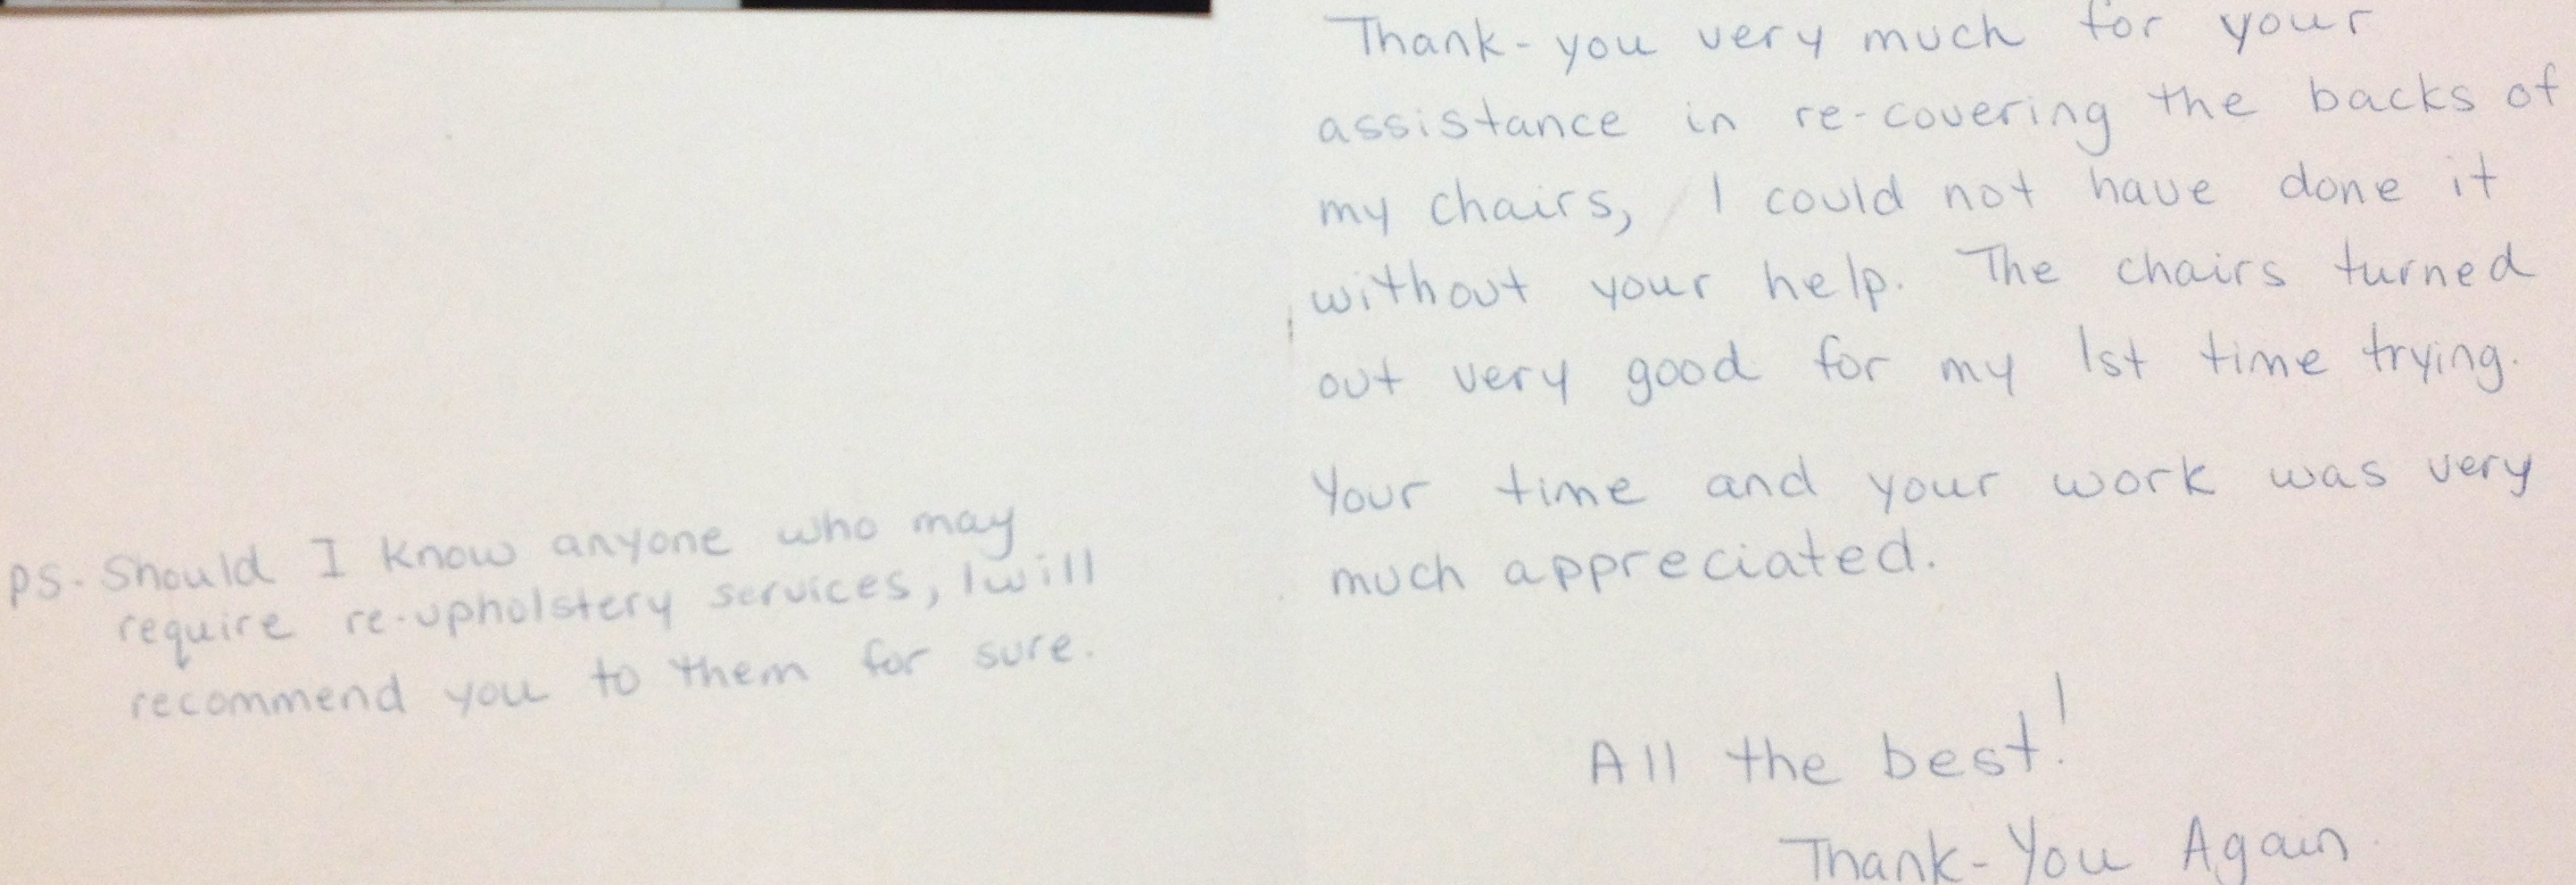 Thank-you very much for your
assistance in re-covering the backs of
my chairs, I could not have done it
without your help. The chairs turned
out very good for my 1st time trying.
Your time and your work was very
much appreciated.
All the best!
Thank-You Again
PS. Should I know anyone who may
require re-upholstery services, I will
recommend you to them for sure.